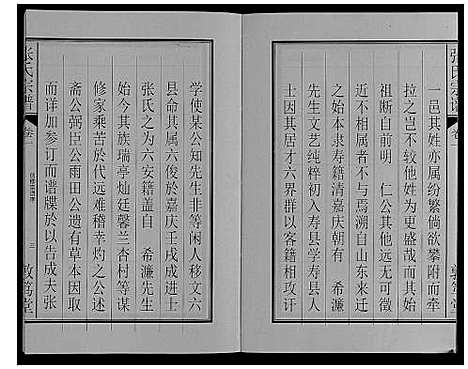 張氏宗譜 卷一
敦篤堂
一邑其姓亦属纷繁倘欲攀附而牵
拉之岂不较他姓为更盛哉而或其
祖断自前明　仁公其他远无可徵
近不相属者不与焉溯自山东来迁
之始本隶寿籍清嘉庆朝有　希濂
先生文艺纯粹初入寿县学寿县人
士因其居才六界群以客籍相攻讦
学使某公知先生非等闲人移文六
县命其属六俊於嘉庆壬戌成进士
张氏之为六安籍盖自　希濂先生
始今其族瑞亭灿廷馨兰杏村等谋
修家乘苦於代远难稽幸灼之公述
斋公弼臣公雨田公遗有草本因取
而详加参订而谱牒於以告成夫张
张氏宗譜 卷一
三
敦篤堂